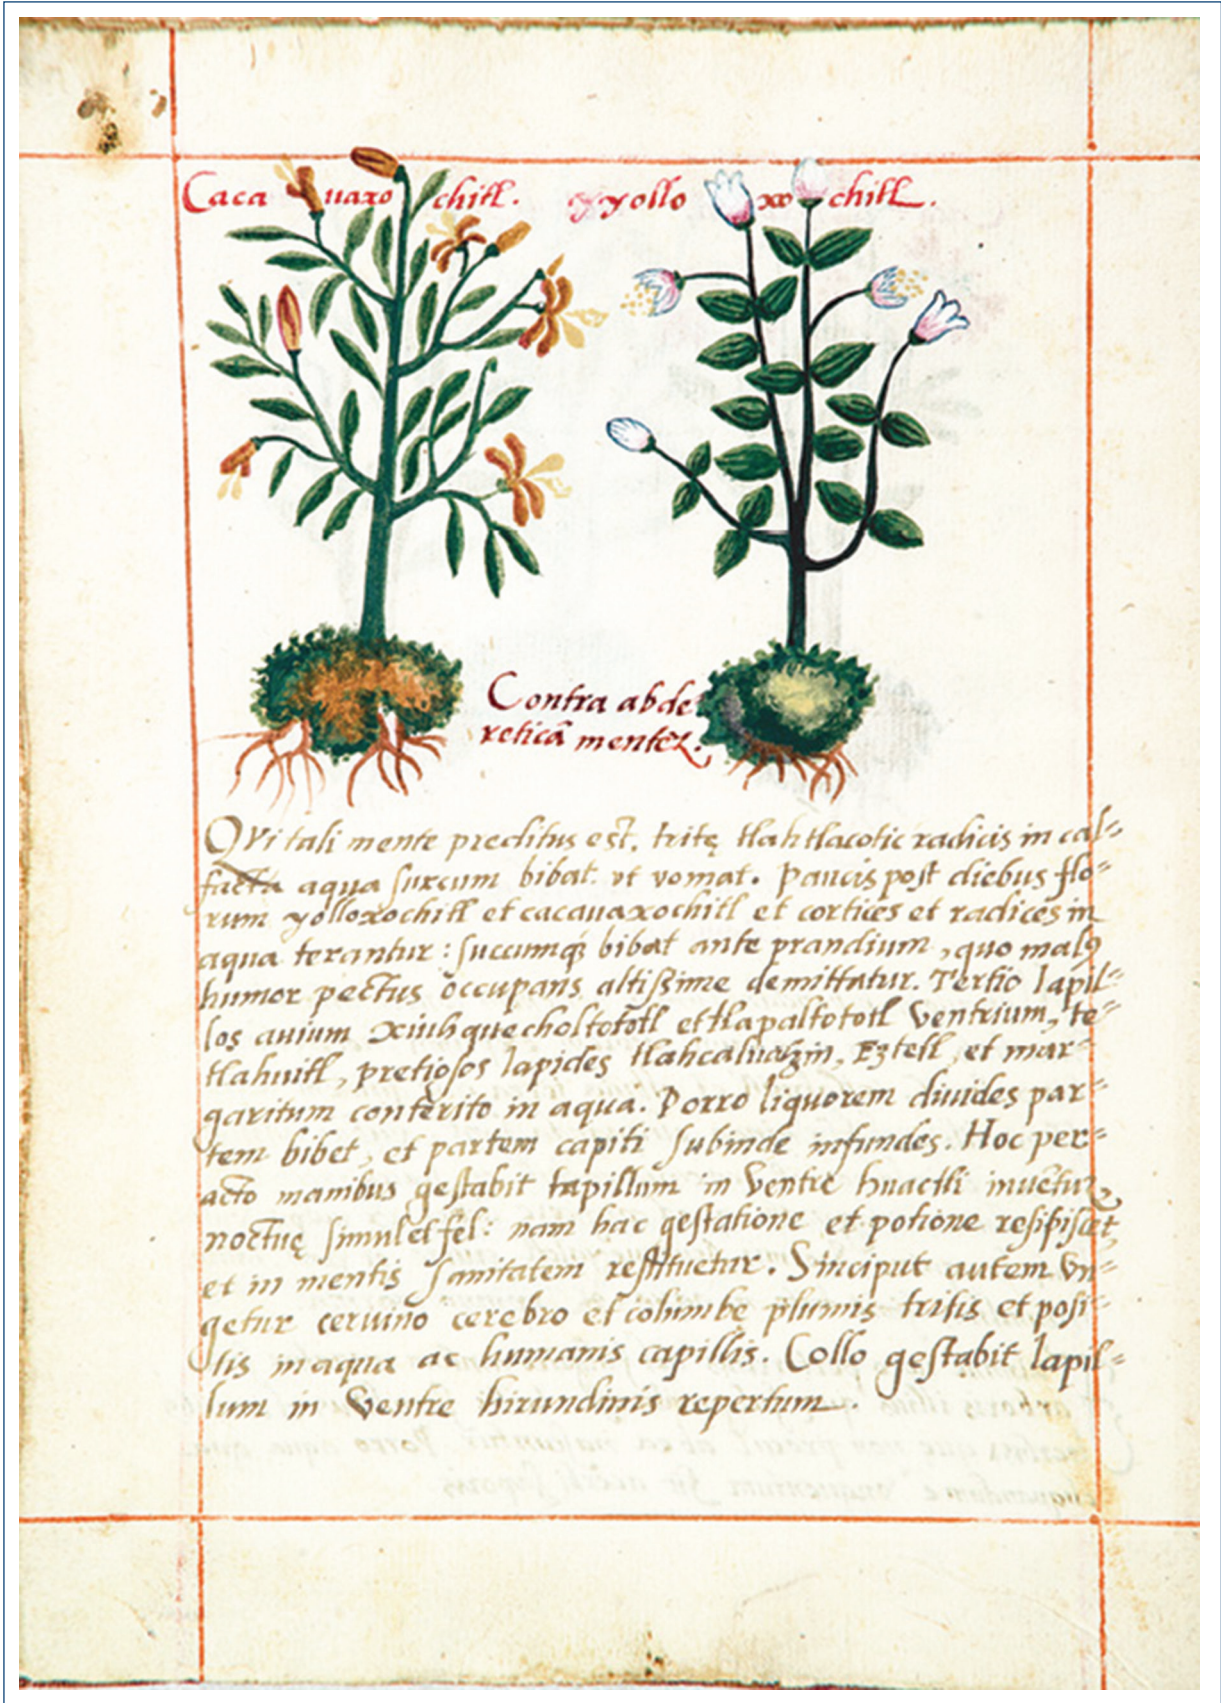 Caca uaxo chitl. yyollo xo chitl.
Contra abde
reticā mentē.
QVi tali mente preditus est, tritę tlahtlacotic radicis in cal-
facta aqua succum bibat. vt vomat. Paucis post diebus flo-
rum yolloxochitl et cacauaxochitl et cortices et radices in
aqua terantur: succumq; bibat ante prandium, quo malꝯ
humor pectus occupans altissime demittatur. Tertio lapil-
los auium xiuhquecholtototl et tlapaltototl ventrium, te-
tlahuitl, pretiosos lapides tlahcalhuatzin, Eztetl, et mar-
garitum conterito in aqua. Porro liquorem diuides par-
tem bibet, et partem capiti subinde infundes. Hoc per-
acto manibus gestabit lapillum in ventre huactli inuētū,
noctuę simul et fel: nam hac gestatione et potione resipiscet,
et in mentis sanitatem restituetur. Sinciput autem vn-
getur ceruino cerebro et columbę plumis tritis et posi-
tis in aqua ac humanis capillis. Collo gestabit lapil-
lum in ventre hirundinis repertum.